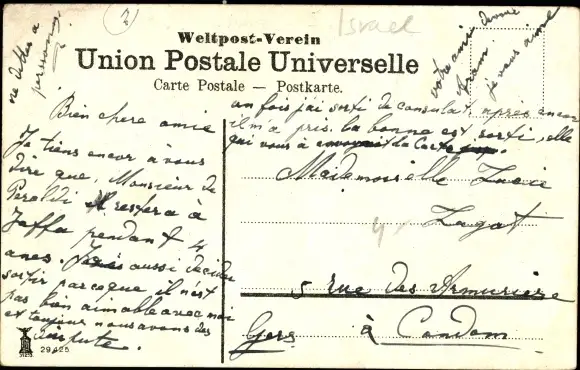 2
Israel
Weltpost-Verein
Union Postale Universelle
Carte Postale — Postkarte.
ne dites a
personne
Bien chere amie
Je tiens encor à vous
dire que, Monsieur de
Peraldi restera à
Jaffa pendant 4
anes. Je suis aussi decider
sortir parceque il n'est
pas bien aimable avec moi
et toujour nous avons des
dispute.
un fois j'ai sorti de consulat, apres encor
il m'a pris. la bonne est sorti, elle
qui vous à envoyait la Carte
votre amie
je vous aime
Mademoiselle Lucie
Lagat
5 rue des Armuriers
à Condom
Gers
29425